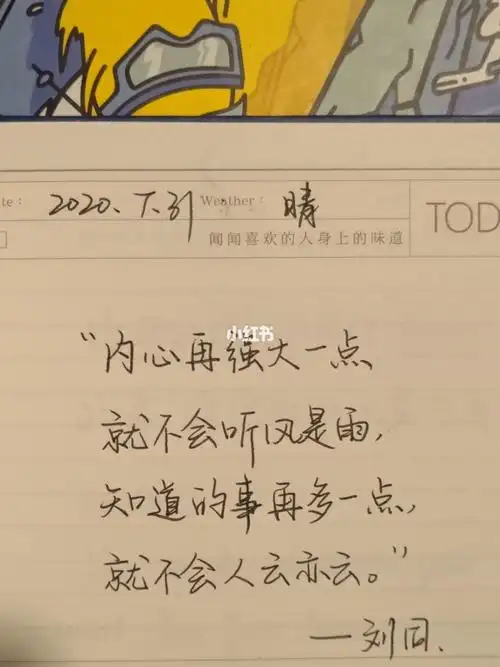 ate: 2020.7.31 Weather: 晴
闻闻喜欢的人身上的味道
TOD
小红书
“内心再强大一点
就不会听风是雨,
知道的事再多一点,
就不会人云亦云。”
—刘同.